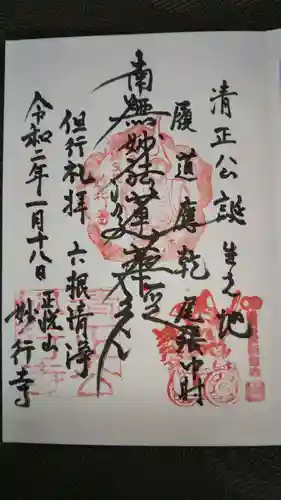 清正公誕生之地
履道應乾 尾張中村
南無妙法蓮華経
但行礼拝 六根清浄
令和二年一月十八日
正悦山
妙行寺